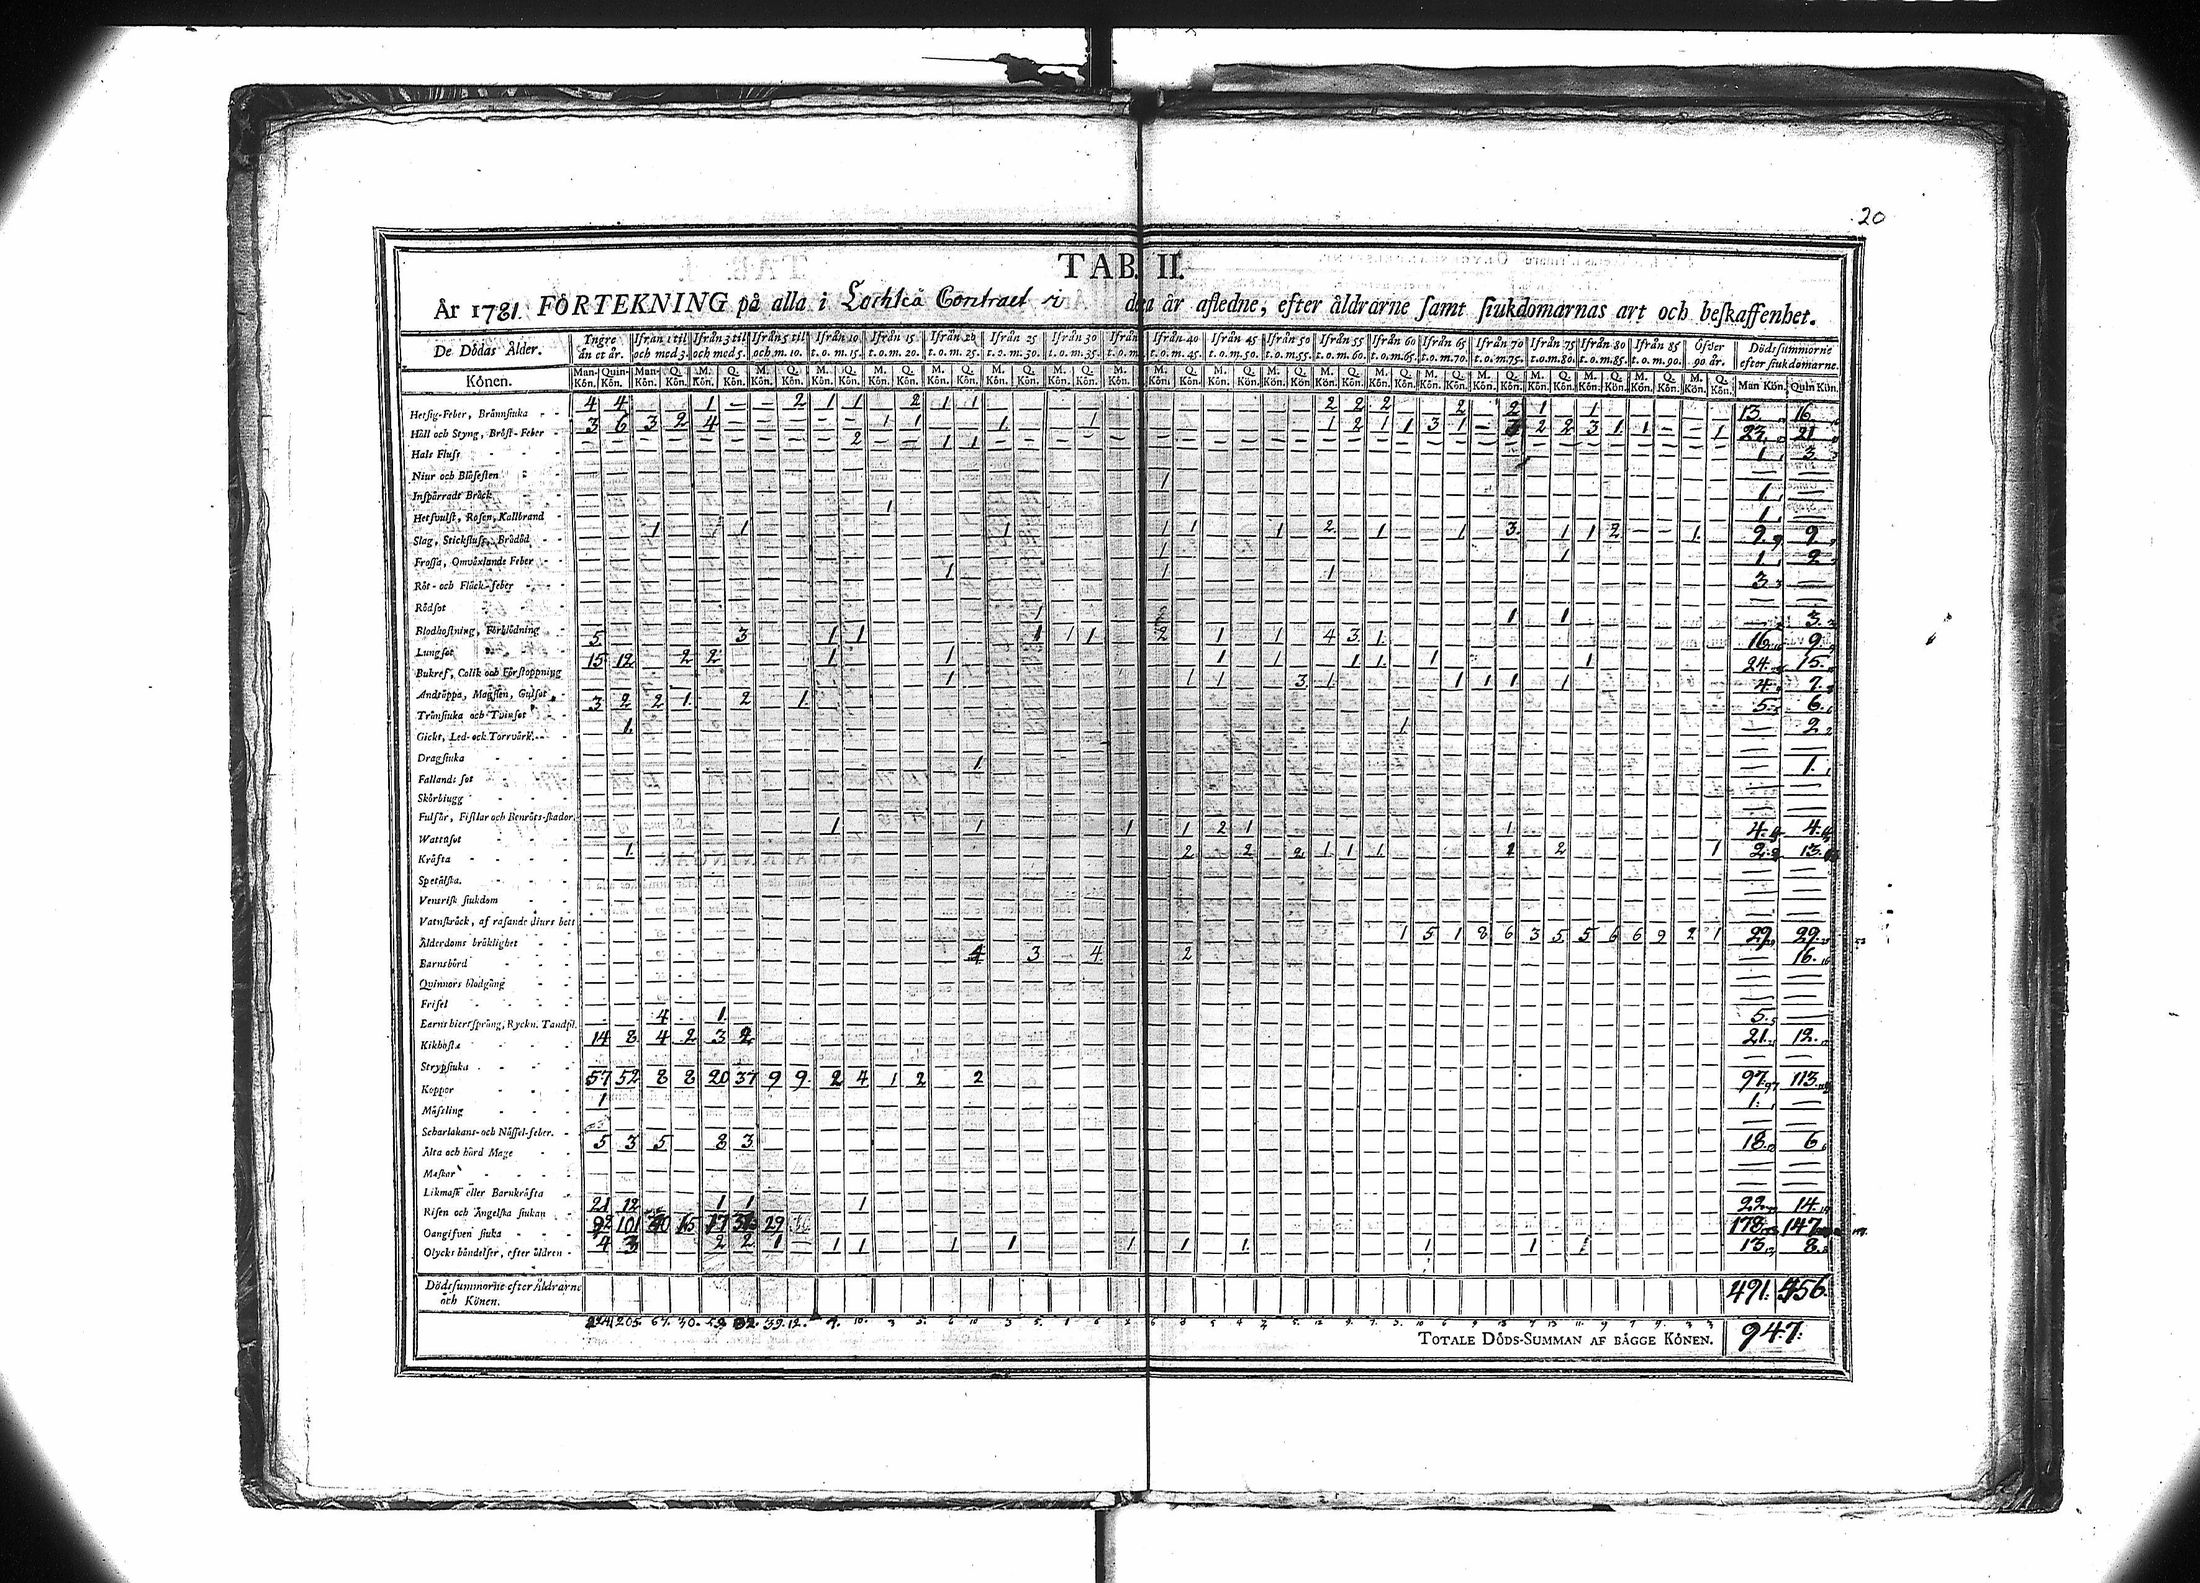 20
TAB. II.
År 1781. FÖRTEKNING på alla i Lochteå Contract i den år afledne, efter åldrarne samt siukdomarnas art och beskaffenhet.
De Dödas Ålder. Yngre än et år. Ifrån 1 til och med 3. Ifrån 3 til och med 5. Ifrån 5 til och m. 10. Ifrån 10 t.o.m. 15. Ifrån 15 t.o.m. 20. Ifrån 20 t.o.m. 25. Ifrån 25 t.o.m. 30. Ifrån 30 t.o.m. 35. Ifrån t.o.m. Ifrån 40 t.o.m. 45. Ifrån 45 t.o.m. 50. Ifrån 50 t.o.m. 55. Ifrån 55 t.o.m. 60. Ifrån 60 t.o.m. 65. Ifrån 65 t.o.m. 70. Ifrån 70 t.o.m. 75. Ifrån 75 t.o.m. 80. Ifrån 80 t.o.m. 85. Ifrån 85 t.o.m. 90. Öfver 90 år. Dödssummorne efter siukdomarne.
Könen. Man-Kön. Quin-Kön. Man-Kön. Q. Kön. M. Kön. Q. Kön. M. Kön. Q. Kön. M. Kön. Q. Kön. M. Kön. Q. Kön. M. Kön. Q. Kön. M. Kön. Q. Kön. M. Kön. Q. Kön. M. Kön. Q. Kön. M. Kön. Q. Kön. M. Kön. Q. Kön. M. Kön. Q. Kön. M. Kön. Q. Kön. M. Kön. Q. Kön. M. Kön. Q. Kön. M. Kön. Q. Kön. M. Kön. Q. Kön. M. Kön. Q. Kön. M. Kön. Q. Kön. Man Kön. Quin Kön.
Hetsig-Feber, Brännsiuka 4 4 1 2 1 1 2 1 1 2 2 2 2 2 1 1 13 16
Håll och Styng, Bröst-Feber 3 6 3 2 4 1 1 1 1 1 2 1 1 3 1 3 2 2 3 1 1 1 23 21
Hals Fluss 2 1 1 1 3
Niur och Blåsesten
Inspärradt Bråck 1 1
Hetsvulst, Rosen, Kallbrand 1 1
Slag, Stickfluss, Brådöd 1 1 1 1 1 1 2 1 1 3 1 1 2 1 9 9
Frossa, Omväxlande Feber 1 1 1 2
Röt- och Fläck-feber 1 1 1 3
Rödsot
Blodhostning, Förblödning 1 1 1 3
Lungsot 5 3 1 1 1 1 1 2 1 1 4 3 1 16 9
Bukref, Colik och Förstoppning 15 12 2 2 1 1 1 1 1 1 1 1 24 15
Andtäppa, Magsien, Gulsot 1 1 1 3 1 1 1 1 1 4 7
Trånsiuka och Tvinsot 3 2 2 1 2 1 5 6
Gickt, Led- och Torrvärk 1 1 2
Dragsiuka
Fallande sot 1 1
Skörbiugg
Fulsår, Fistlar och Benröts-skador
Wattusot 1 1 1 1 2 1 1 4 4
Kräfta 1 2 2 2 1 1 1 2 2 1 2 13
Spetälska.
Venerisk siukdom
Vatnskräck, af rasande diurs bett
Ålderdoms bräklighet 1 5 1 8 6 3 5 5 6 6 9 2 1 29 29
Barnsbörd 4 3 4 2 16
Quinnors blodgång
Frisel
Barns hiertsprång, Ryckn. Tandsl. 4 1 5
Kikhosta 14 8 4 2 3 2 21 12
Strypsiuka
Koppor 57 52 8 8 20 37 9 9 2 4 1 2 2 97 113
Mässling 1 1
Scharlakans- och Nässel-feber.
Älta och hård Mage 5 3 5 8 3 18 6
Maskar
Likmask eller Barnkräfta
Risen och Ängelska siukan 21 12 1 1 1 22 14
Oangifven siuka 92 101 40 15 17 29 178 147
Olyckshändelser, efter åldren 4 3 2 2 1 1 1 1 1 1 1 1 1 1 13 8
Dödssummorne efter Åldrarne och Könen. 491. 456.
224 205. 67. 30. 59. 39. 12.
TOTALE DÖDS-SUMMAN AF BÄGGE KÖNEN. 947.